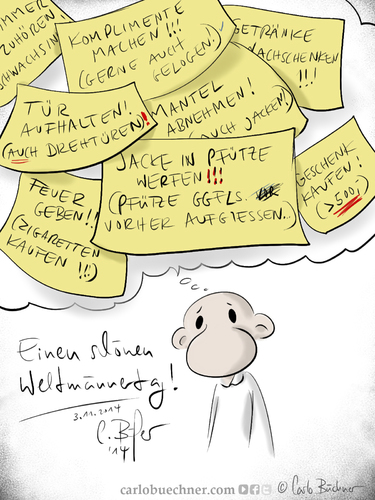 IMMER
ZUHÖREN!
KOMPLIMENTE
MACHEN!!!
(GERNE AUCH
GELOGEN!)
GETRÄNKE
NACHSCHENKEN
!!!
TÜR
AUFHALTEN!
(AUCH DREHTÜREN)!
MANTEL
ABNEHMEN!
(AUCH JACKEN!)
FEUER
GEBEN!!
(ZIGARETTEN
KAUFEN!!!)
JACKE IN PFÜTZE
WERFEN!!!
(PFÜTZE GGFLS.
VORHER AUFGIESSEN..)
GESCHENK
KAUFEN!
(>500,)
Einen schönen
Weltmännertag!
3.11.2014
'14
carlobuechner.com
© Carlo Büchner